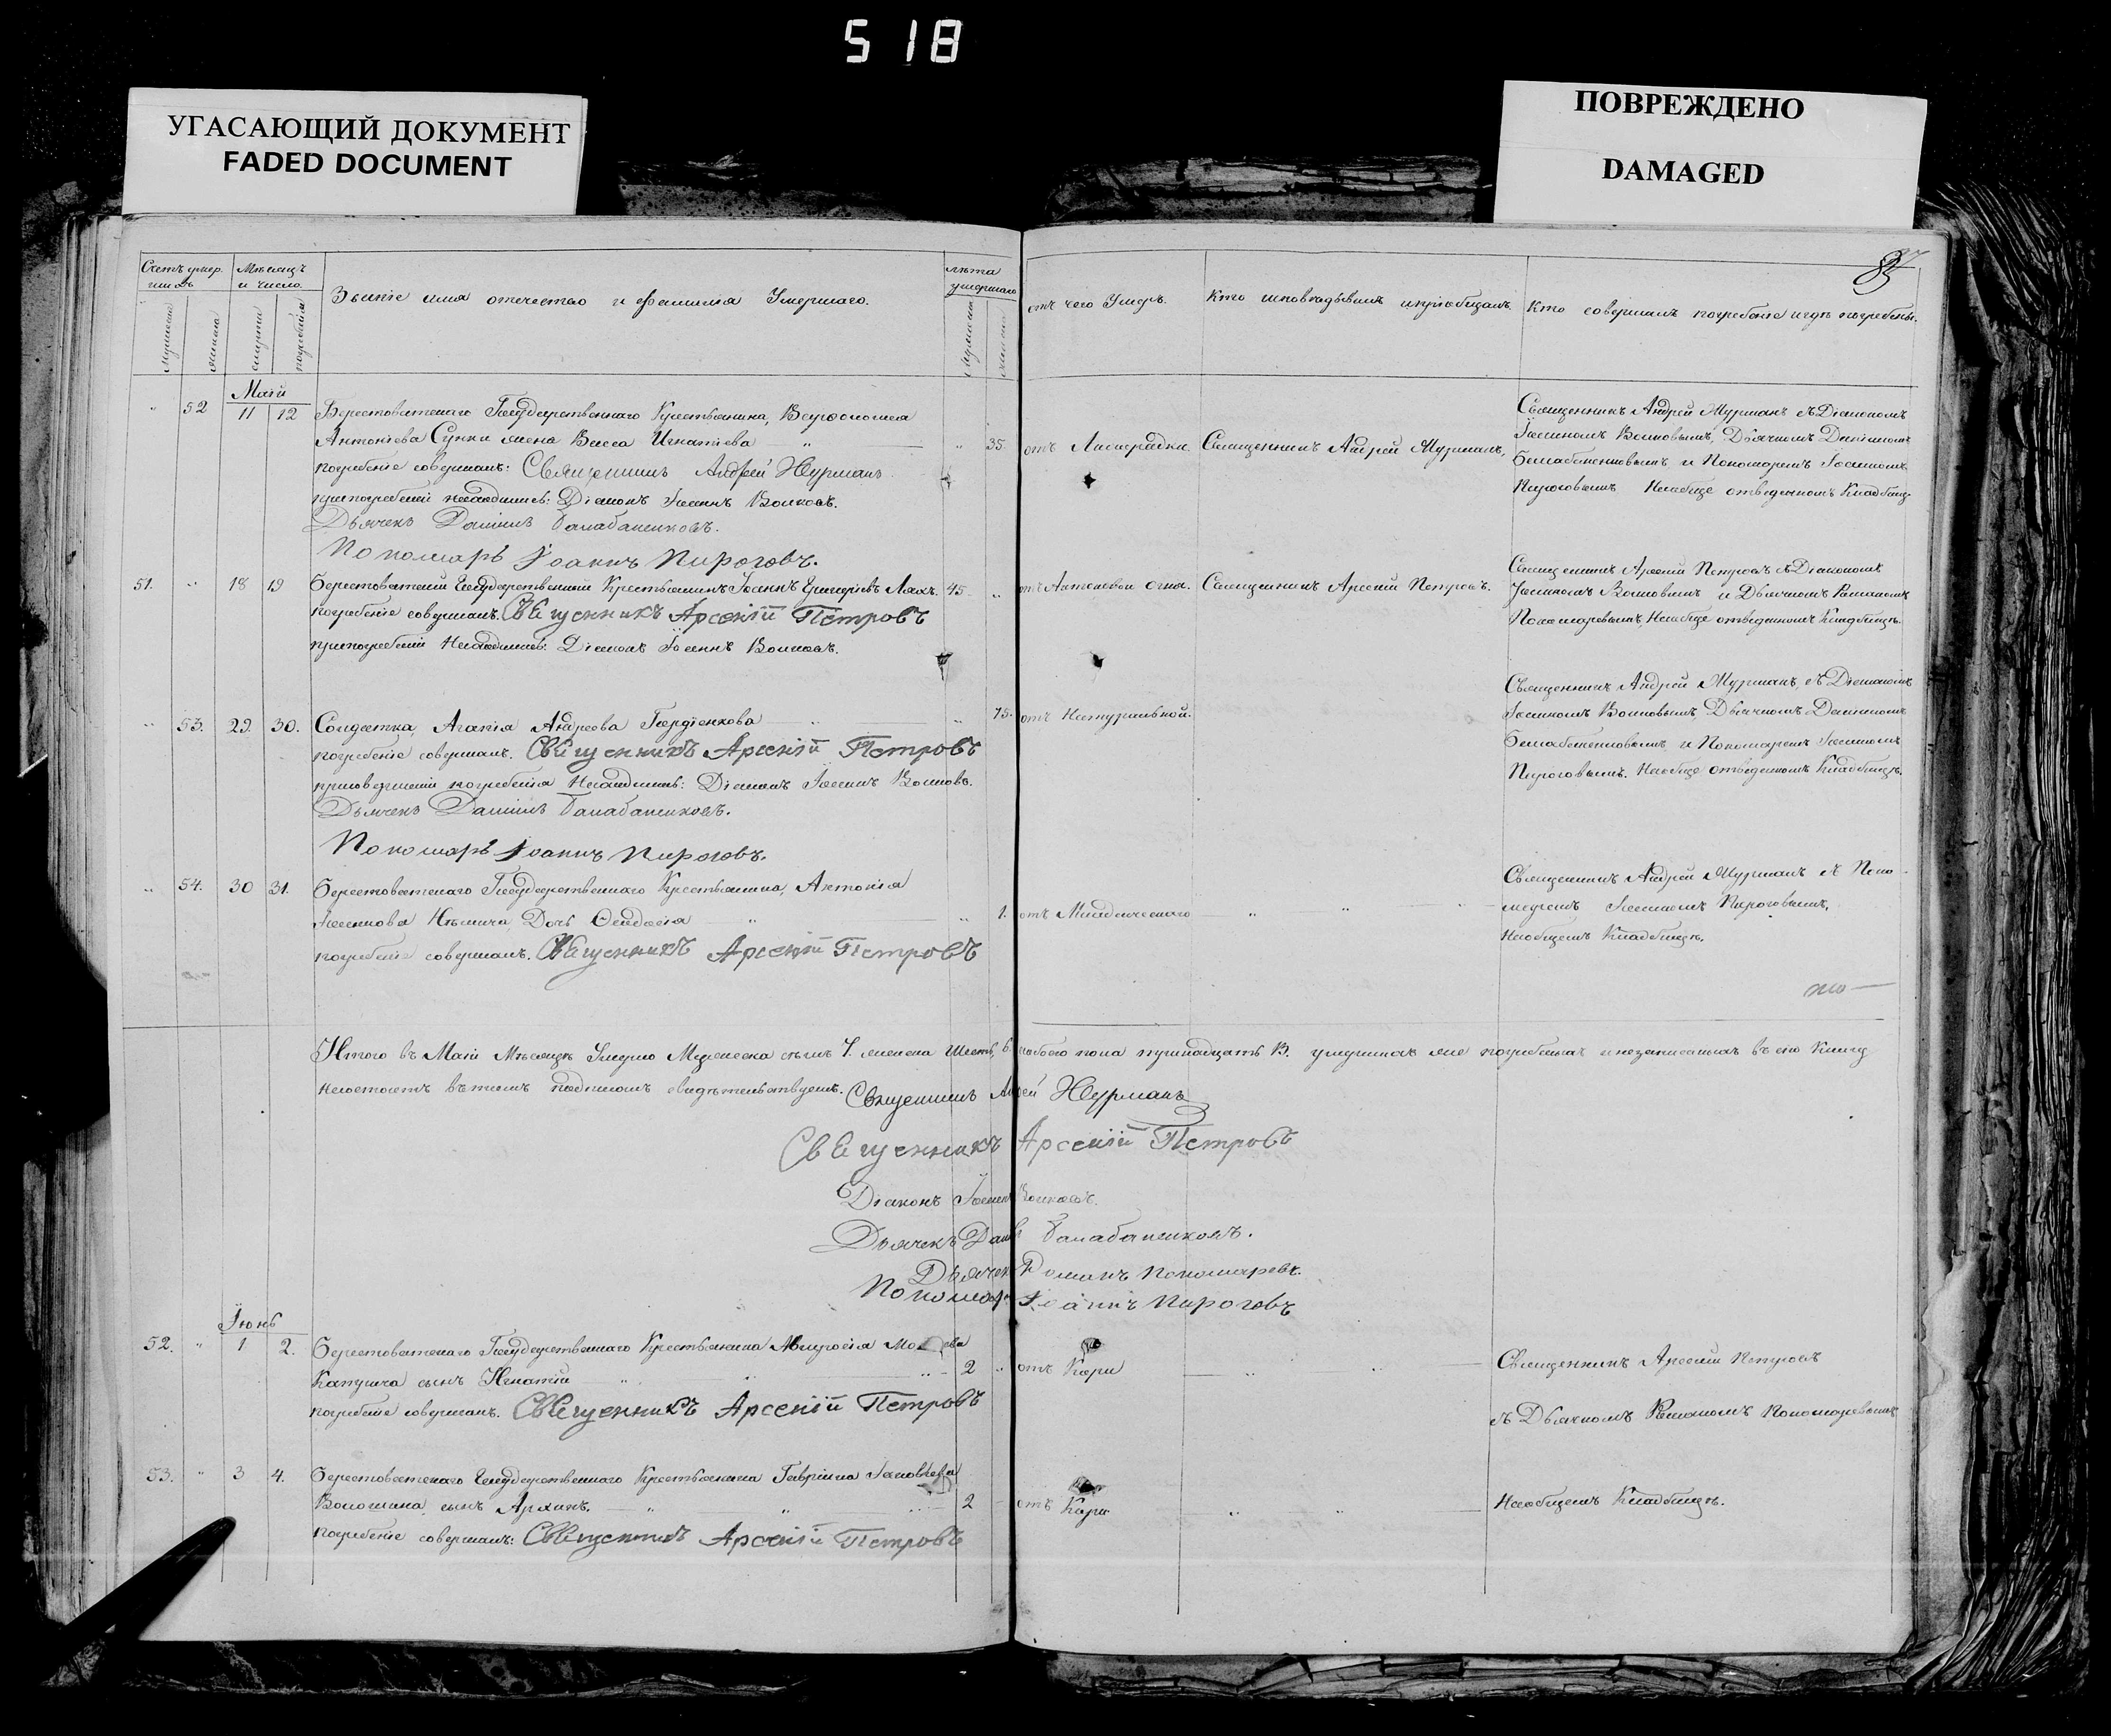 518
УГАСАЮЩИЙ ДОКУМЕНТ
FADED DOCUMENT
ПОВРЕЖДЕНО
DAMAGED
Счетъ умер-
шихъ
Мѣсяцъ
и число.
Званіе имя отечество и фамилія Умершаго.
лѣта
умершаго
мужеска
женска
смерти
погребенія
отъ чего Умеръ.
Кто исповѣдывалъ и пріобщалъ.
Кто совершалъ погребеніе и гдѣ погребены.
Маій
52 11 12 Берестоватскаго Государственнаго Крестьянина,
Антоніева жена Васса Игнатіева 35 отъ Лихорадки. Священникъ Андрей Журманъ,
Священникъ Андрей Журманъ съ Діакономъ
Іоанномъ Волковымъ, Дьячкомъ Даніиломъ
Балабаненковымъ и Пономаремъ Іоанномъ
Пироговымъ На обще отведенномъ Кладбищѣ
погребеніе совершалъ: Священникъ Андрей Журманъ
при погребеніи находились: Діаконъ Іоаннъ Волковъ.
Дьячекъ Даніилъ Балабаненковъ.
Пономарь Іоаннъ Пироговъ.
51. 18 19 Берестоватскій Государственный Крестьянинъ Іоаннъ Григоріевъ Ляхъ. 45 отъ Антоновой огня. Священникъ Арсеній Петровъ.
Священникъ Арсеній Петровъ съ Діакономъ
Іоанномъ Волковымъ и Дьячкомъ Романомъ
Пономаревымъ, На обще отведенномъ Кладбищѣ.
погребеніе совершалъ. Священникъ Арсеній Петровъ
при погребеніи Находились: Діаконъ Іоаннъ Волковъ.
53. 29. 30. Солдатка, Агапія Андреева Гордіенкова 75. отъ Натуральной.
Священникъ Андрей Журманъ, съ Діакономъ
Іоанномъ Волковымъ, Дьячкомъ Даніиломъ
Балабаненковымъ и Пономаремъ Іоанномъ
Пироговымъ. На обще отведенномъ Кладбищѣ.
погребеніе совершалъ. Священникъ Арсеній Петровъ
при совершеніи погребенія Находились: Діаконъ Іоаннъ Волковъ.
Дьячекъ Даніилъ Балабаненковъ.
Пономарь Іоаннъ Пироговъ.
54. 30 31. Берестоватскаго Государственнаго Крестьянина, Антонія
Дочь Феодосія 1. отъ Младенческаго
Священникъ Андрей Журманъ съ Поно-
маремъ Іоанномъ Пироговымъ.
На общемъ Кладбищѣ.
погребеніе совершалъ. Священникъ Арсеній Петровъ
Итого въ Маіи Мѣсяцѣ Умерло Мужеска семь 7. женска Шесть 6. обоего пола тринадцать 13. умершихъ же погребенныхъ и незаписанныхъ въ сію Книгу
несостоитъ въ томъ подписомъ свидѣтельствуемъ. Священникъ Андрей Журманъ
Священникъ Арсеній Петровъ
Діаконъ Іоаннъ Волковъ.
Дьячекъ Даніилъ Балабаненковъ.
Дьячекъ Романъ Пономаревъ.
Пономарь Іоаннъ Пироговъ
Іюнь
52. 1 2. Берестоватскаго Государственнаго Крестьянина Амвросія
сынъ Игнатій 2 отъ Кори
Священникъ Арсеній Петровъ
съ Дьячкомъ Романомъ Пономаревымъ
погребеніе совершалъ. Священникъ Арсеній Петровъ
53. 3 4. Берестоватскаго Государственнаго Крестьянина Гавріила Яковлева
Волошина, сынъ Архипъ. 2 отъ Кори
На общемъ Кладбищѣ.
погребеніе совершалъ: Священникъ Арсеній Петровъ